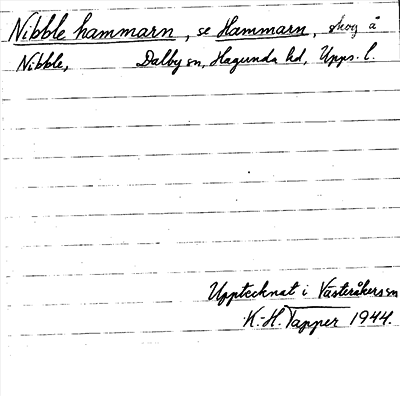 Nibble hammarn, se Hammarn, skog å
Nibble, Dalby sn, Hagunda hd, Upps. l.
Upptecknat i Västeråkers sn
K.-H. Tapper 1944.